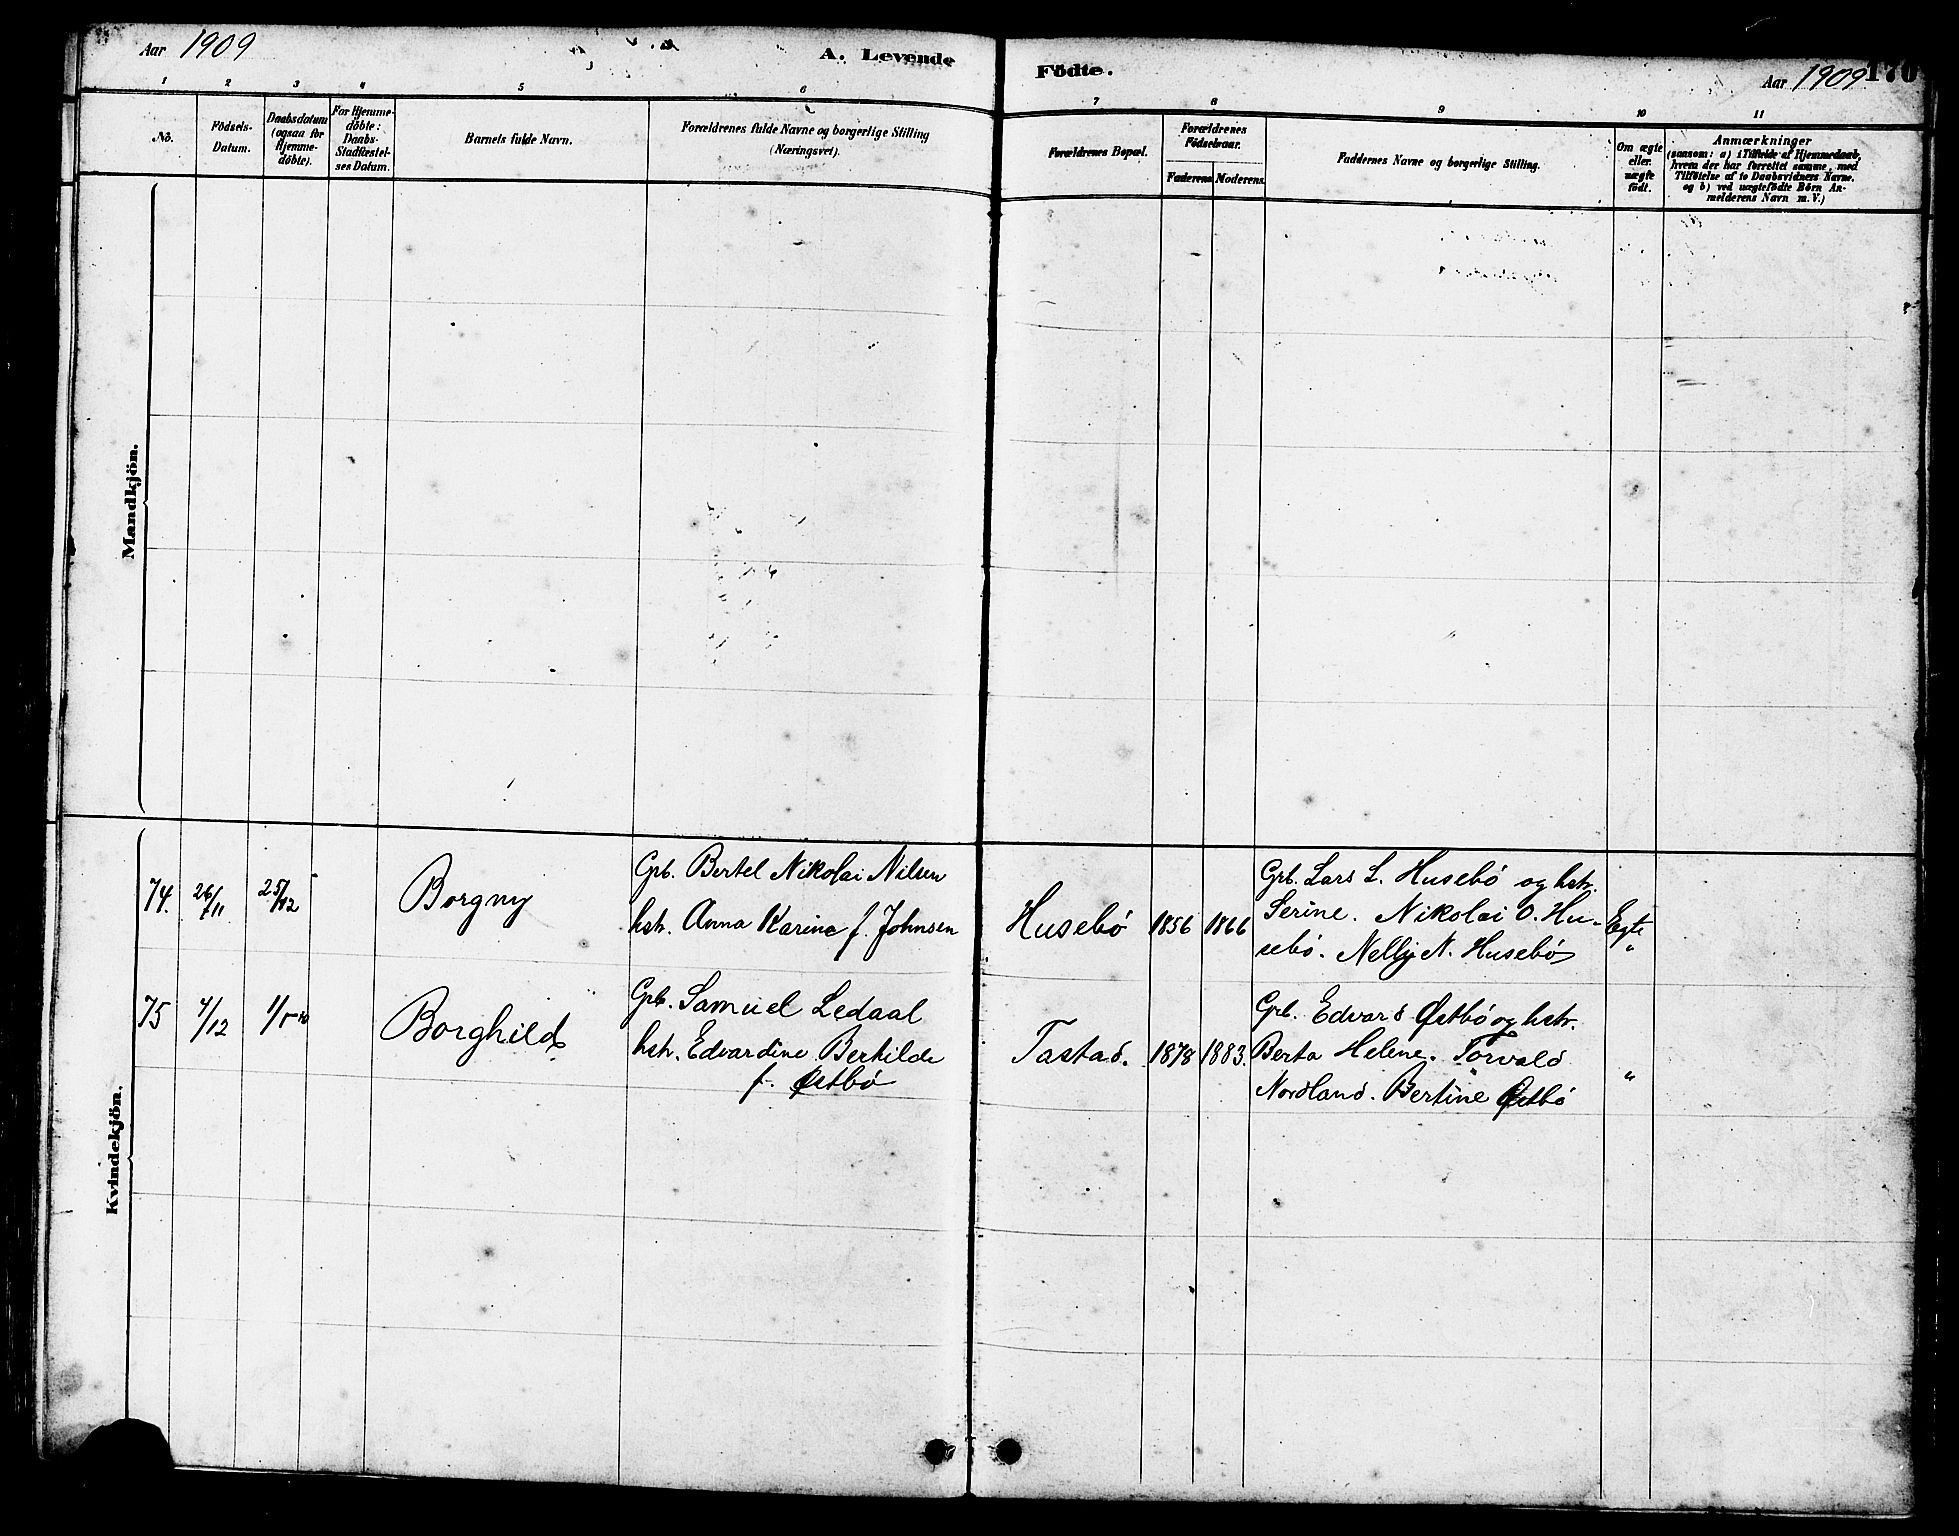 Aar 1909
A. Levende
Födte.
Aar 1909
170
1 2 3 4 5 6 7 8 9 10 11
No.
Födsels-
Datum.
Daabsdatum
(ogsaa for
Hjemme-
döbte).
For Hjemme-
döbte:
Daabs-
Stadfæstel-
ses Datum.
Barnets fulde Navn.
Forældrenes fulde Navne og borgerlige Stilling
(Næringsvei).
Forældrenes Bopæl.
Forældrenes
Födselsaar.
Faderens Moderens.
Faddernes Navne og borgerlige Stilling.
Om ægte
eller
uægte
födt.
Anmærkninger
(saasom: a) i Tilfælde af Hjemmedaab,
hvem der har forrettet samme, med
Tilföielse af to Daabsvidners Navne.
og b) ved uægtefödte Börn An-
melderens Navn m. V.)
Mandkjön.
Kvindekjön.
74. 26/11 25/12
Borgny
Grb. Bertel Nikolai Nilsen
hstr. Anna Karine f. Johnsen
Husebö 1856 1866
Grb. Lars L. Husebö og hstr.
Serine. Nikolai O. Hu-
sebö. Nelly N. Husebö
Egte
"
75 4/12 1/1 10
Borghild
Grb. Samuel Ledaal
hstr. Edvardine Bertilde
f. Østbö
Tastad. 1878 1883.
Grb. Edvard Østbö og hstr.
Berta Helene. Torvald
Nordland. Bertine Østbö
"